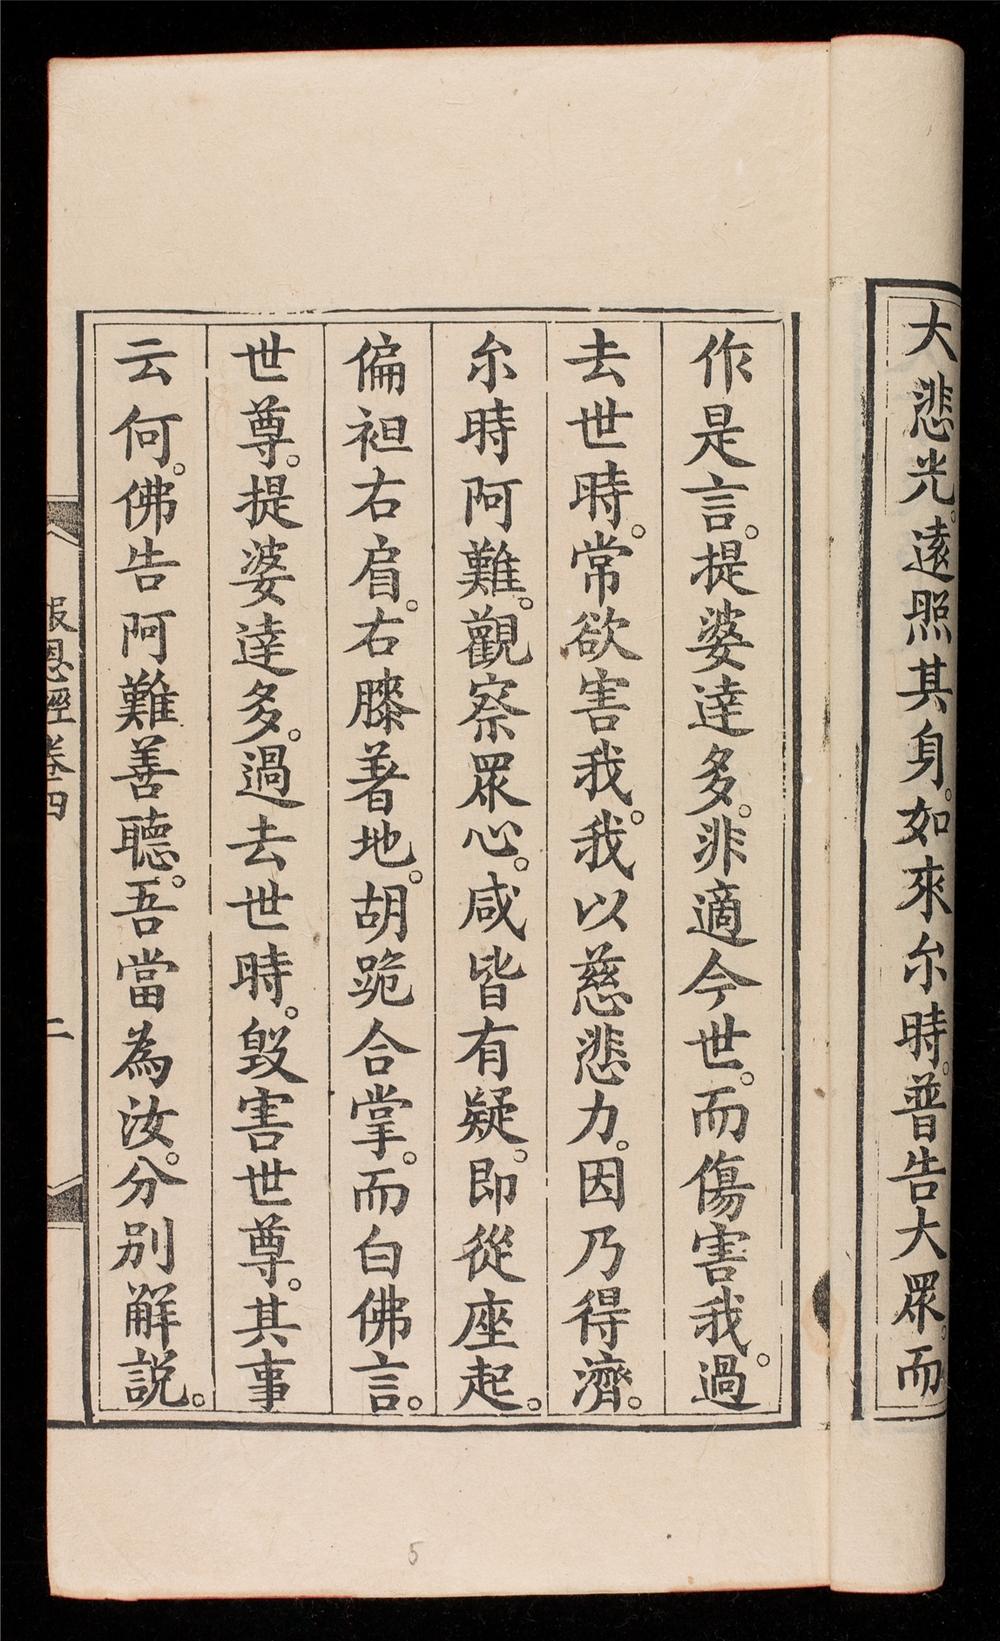 大悲光。遠照其身。如來尒時。普告大眾。而
作是言。提婆達多。非適今世。而傷害我。過
去世時。常欲害我。我以慈悲力。因乃得濟。
尒時阿難。觀察眾心。咸皆有疑。即從座起。
偏袒右肩。右膝著地。胡跪合掌。而白佛言。
世尊。提婆達多。過去世時。毀害世尊。其事
云何。佛告阿難善聽。吾當為汝。分別解説。
報恩經卷四
二
5